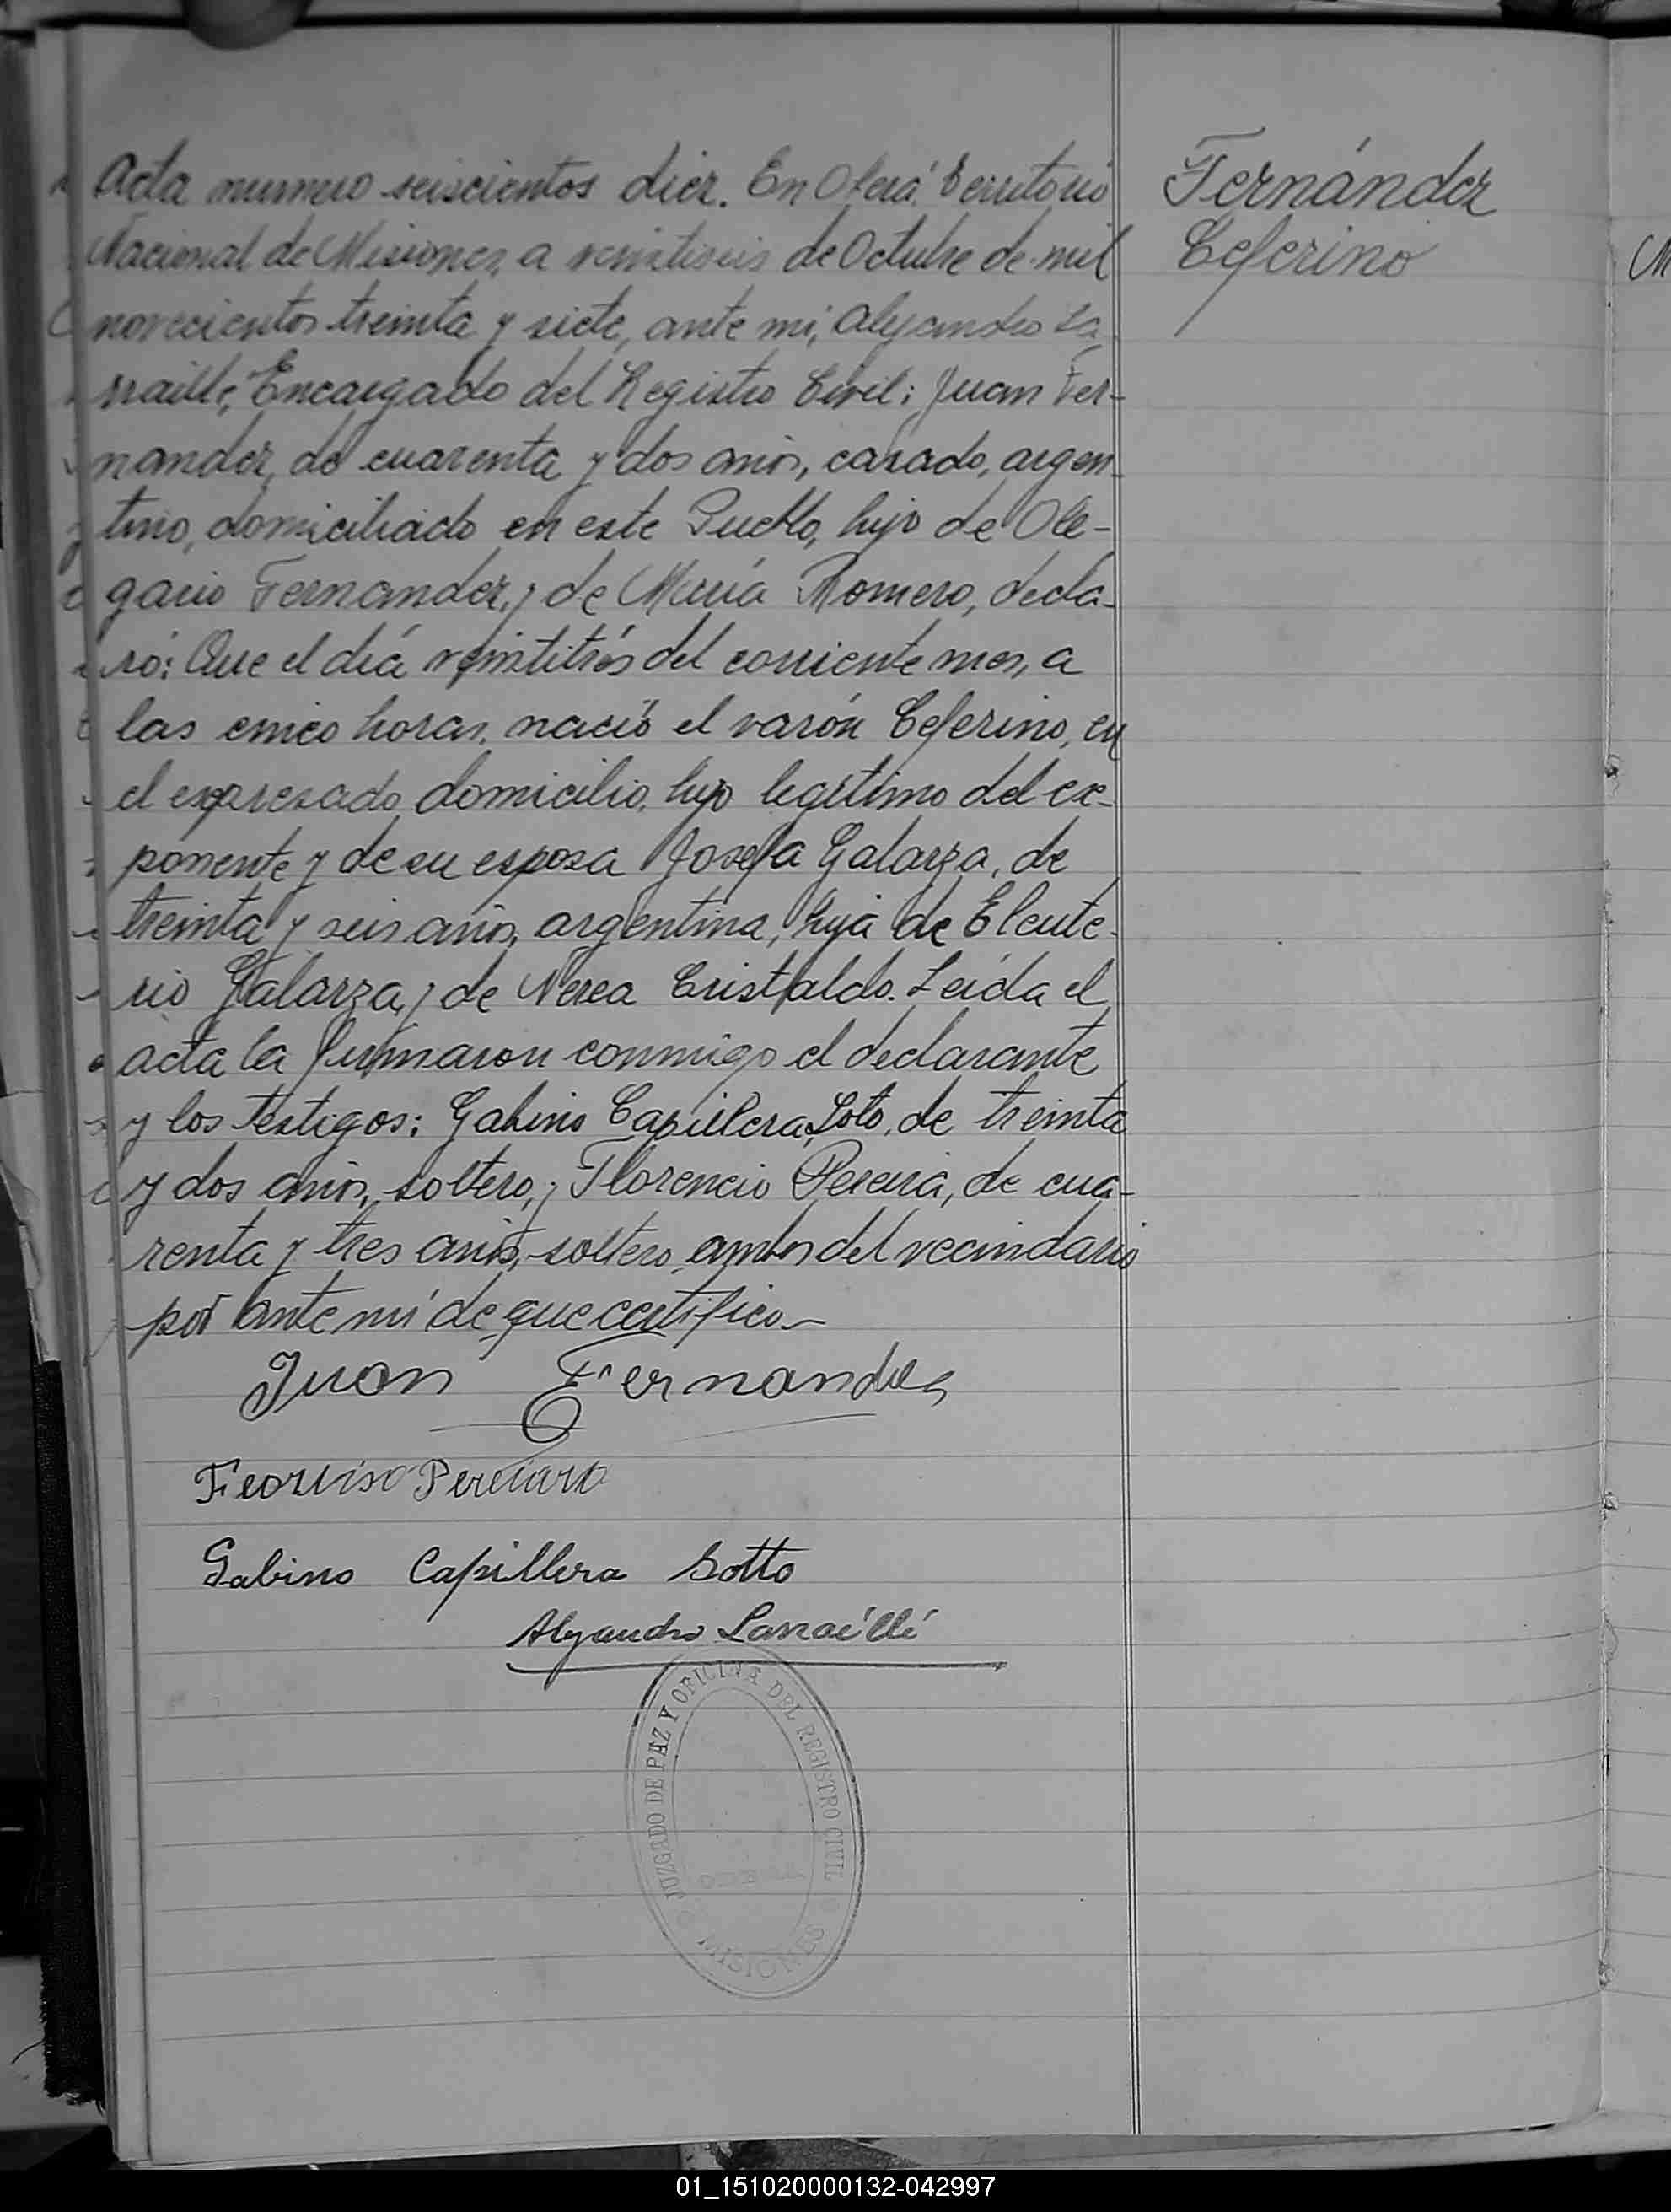 Acta numero seiscientos diez. En Oberá, Territorio
Nacional de Misiones, a veintiseis de Octubre de mil
novecientos treinta y siete, ante mi, Alejandro La
rraille, Encargado del Registro Civil: Juan Fer-
nandez, de cuarenta y dos años, casado, argen
tino, domiciliado en este Pueblo, hijo de Ole-
gario Fernandez, y de María Romero, decla-
ró: Que el día veintitrés del corriente mes, a
las cinco horas, nació el varón Ceferino, en
el expresado domicilio, hijo legítimo del ex-
ponente y de su esposa Josefa Galarza, de
treinta y seis años, argentina, hija de Eleute-
rio Galarza, y de Nerea Cristaldo. Leída el
acta la firmaron conmigo el declarante
y los testigos: Gabino Capillera Soto, de treinta
y dos años, soltero, y Florencio Pereira, de cua-
renta y tres años, soltero, ambos del vecindario
por ante mí de que certifico
Juan Fernandes
Gabino Capillera Sotto
Alejandro Larraillé
JUZGADO DE PAZ Y OFICINA DEL REGISTRO CIVIL
MISIONES
Fernández
Ceferino
01_151020000132-042997